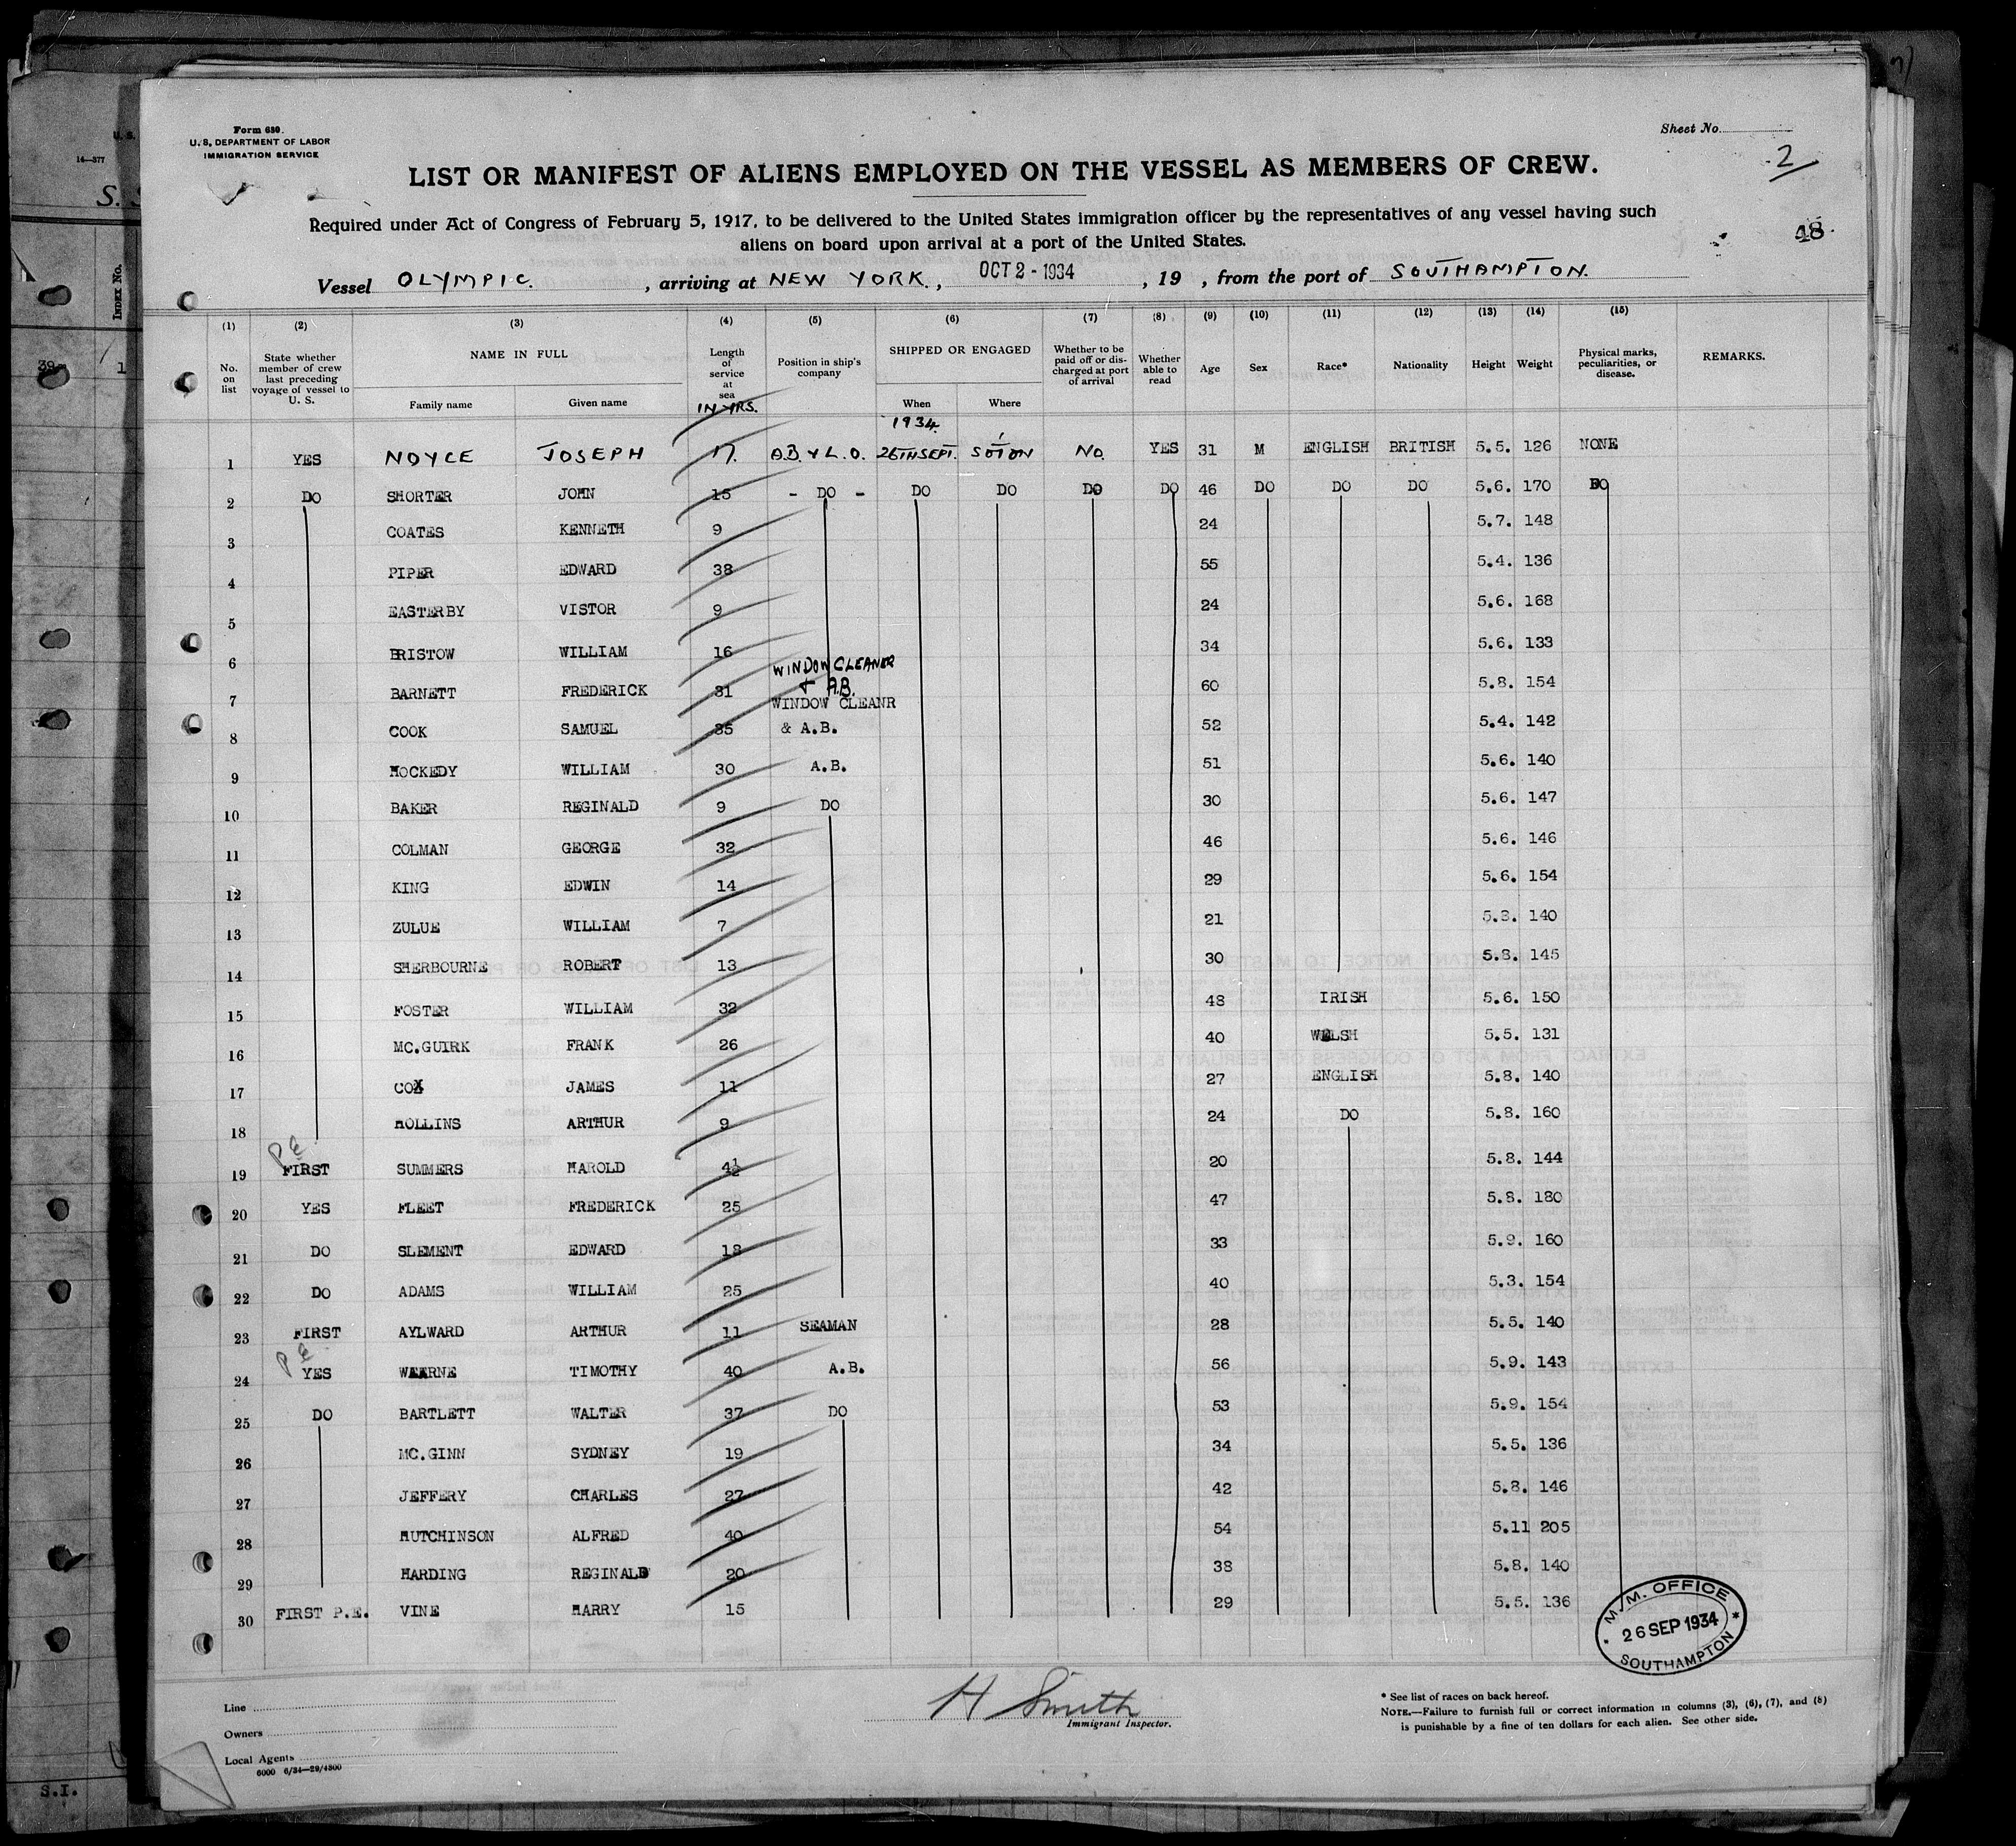 Form 680.
U. S. DEPARTMENT OF LABOR
IMMIGRATION SERVICE
Sheet No.
2
LIST OR MANIFEST OF ALIENS EMPLOYED ON THE VESSEL AS MEMBERS OF CREW.
Required under Act of Congress of February 5, 1917, to be delivered to the United States immigration officer by the representatives of any vessel having such
aliens on board upon arrival at a port of the United States.
48
Vessel OLYMPIC. , arriving at NEW YORK., OCT 2 - 1934 , 19 , from the port of SOUTHAMPTON.
(1) (2) (3) (4) (5) (6) (7) (8) (9) (10) (11) (12) (13) (14) (15)
No. on list State whether member of crew last preceding voyage of vessel to U. S. NAME IN FULL Family name Given name Length of service at sea IN YRS. Position in ship's company SHIPPED OR ENGAGED When Where Whether to be paid off or discharged at port of arrival Whether able to read Age Sex Race* Nationality Height Weight Physical marks, peculiarities, or disease. REMARKS.
1934.
1 YES NOYCE JOSEPH 17. A.B. & L.O. 26TH SEPT. S'OTON NO. YES 31 M ENGLISH BRITISH 5.5. 126 NONE
2 DO SHORTER JOHN 15 - DO - DO DO DO DO 46 DO DO DO 5.6. 170 DO
3 COATES KENNETH 9 24 5.7. 148
4 PIPER EDWARD 38 55 5.4. 136
5 EASTERBY VISTOR 9 24 5.6. 168
6 BRISTOW WILLIAM 16 34 5.6. 133
7 BARNETT FREDERICK 31 WINDOW CLEANER & A.B. 60 5.8. 154
8 COOK SAMUEL 35 WINDOW CLEANR & A.B. 52 5.4. 142
9 HOCKEDY WILLIAM 30 A.B. 51 5.6. 140
10 BAKER REGINALD 9 DO 30 5.6. 147
11 COLMAN GEORGE 32 46 5.6. 146
12 KING EDWIN 14 29 5.6. 154
13 ZULUE WILLIAM 7 21 5.8. 140
14 SHERBOURNE ROBERT 13 30 5.8. 145
15 FOSTER WILLIAM 32 48 IRISH 5.6. 150
16 MC.GUIRK FRANK 26 40 WELSH 5.5. 131
17 COX JAMES 11 27 ENGLISH 5.8. 140
18 HOLLINS ARTHUR 9 24 DO 5.8. 160
P.E.
19 FIRST SUMMERS HAROLD 4½ 20 5.8. 144
20 YES FLEET FREDERICK 25 47 5.8. 180
21 DO SLEMENT EDWARD 18 33 5.9. 160
22 DO ADAMS WILLIAM 25 40 5.3. 154
23 FIRST AYLWARD ARTHUR 11 SEAMAN 28 5.5. 140
P.E.
24 YES WEARNE TIMOTHY 40 A.B. 56 5.9. 143
25 DO BARTLETT WALTER 37 DO 53 5.9. 154
26 MC.GINN SYDNEY 19 34 5.5. 136
27 JEFFERY CHARLES 27 42 5.8. 146
28 HUTCHINSON ALFRED 40 54 5.11 205
29 HARDING REGINALD 20 38 5.8. 140
30 FIRST P.E. VINE HARRY 15 29 5.5. 136
M.M. OFFICE
26 SEP 1934
SOUTHAMPTON
Line
Owners
Local Agents
6000 6/34—29/4300
H Smith
Immigrant Inspector.
* See list of races on back hereof.
NOTE.—Failure to furnish full or correct information in columns (3), (6), (7), and (8)
is punishable by a fine of ten dollars for each alien. See other side.
14—377
S. S
INDEX No.
39
1
S.I.